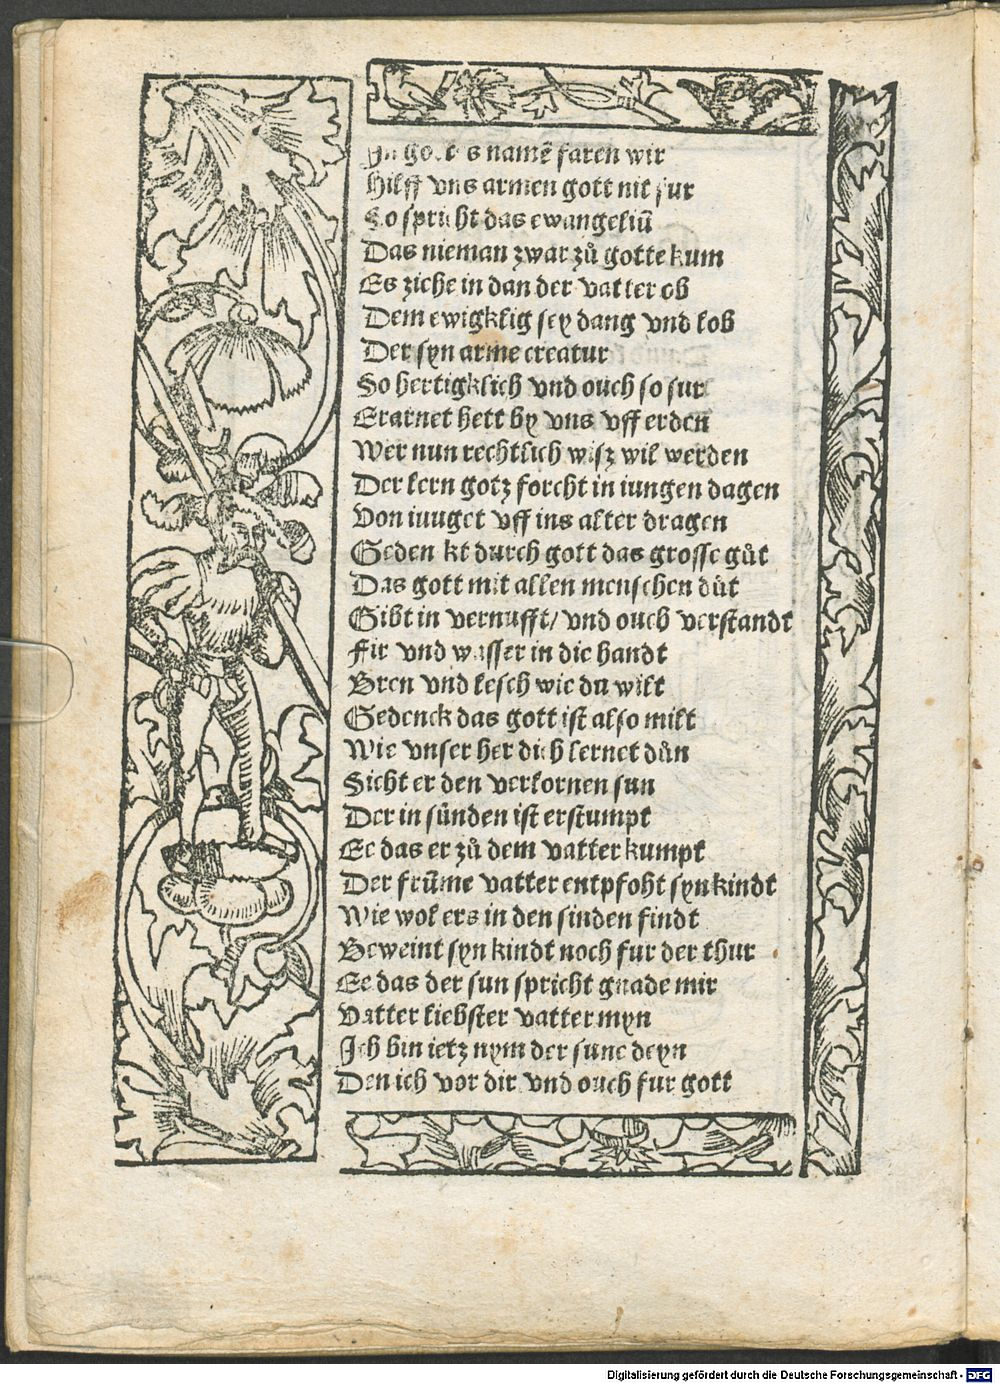 In gottes namē faren wir
Hilff vns armen gott nit fur
So spricht das ewangeliū
Das nieman zwar zů gotte kum
Es ziche in dan der vatter ob
Dem ewigklig sey dang vnd lob
Der syn arme creatur
So hertigklich vnd ouch so sur
Erarnet hett by vns vff erden
Wer nun rechtlich wisz wil werden
Der lern gotz forcht in iungen dagen
Von iuuget vff ins alter dragen
Geden kt durch gott das grosse gůt
Das gott mit allen menschen důt
Gibt in vernufft/ vnd ouch verstandt
Fir vnd wasser in die handt
Bren vnd lesch wie du wilt
Gedenck das gott ist also milt
Wie vnser her dich lernet důn
Sicht er den verlornen sun
Der in sünden ist erstumpt
Ee das er zů dem vatter kumpt
Der frūme vatter entpfoht syn kindt
Wie wol ers in den sinden findt
Beweint syn kindt noch fur der thur
Ee das der sun spricht gnade mir
Vatter liebster vatter myn
Ich bin ietz nym der sune deyn
Den ich vor dir vnd ouch fur gott
Digitalisierung gefördert durch die Deutsche Forschungsgemeinschaft - DFG